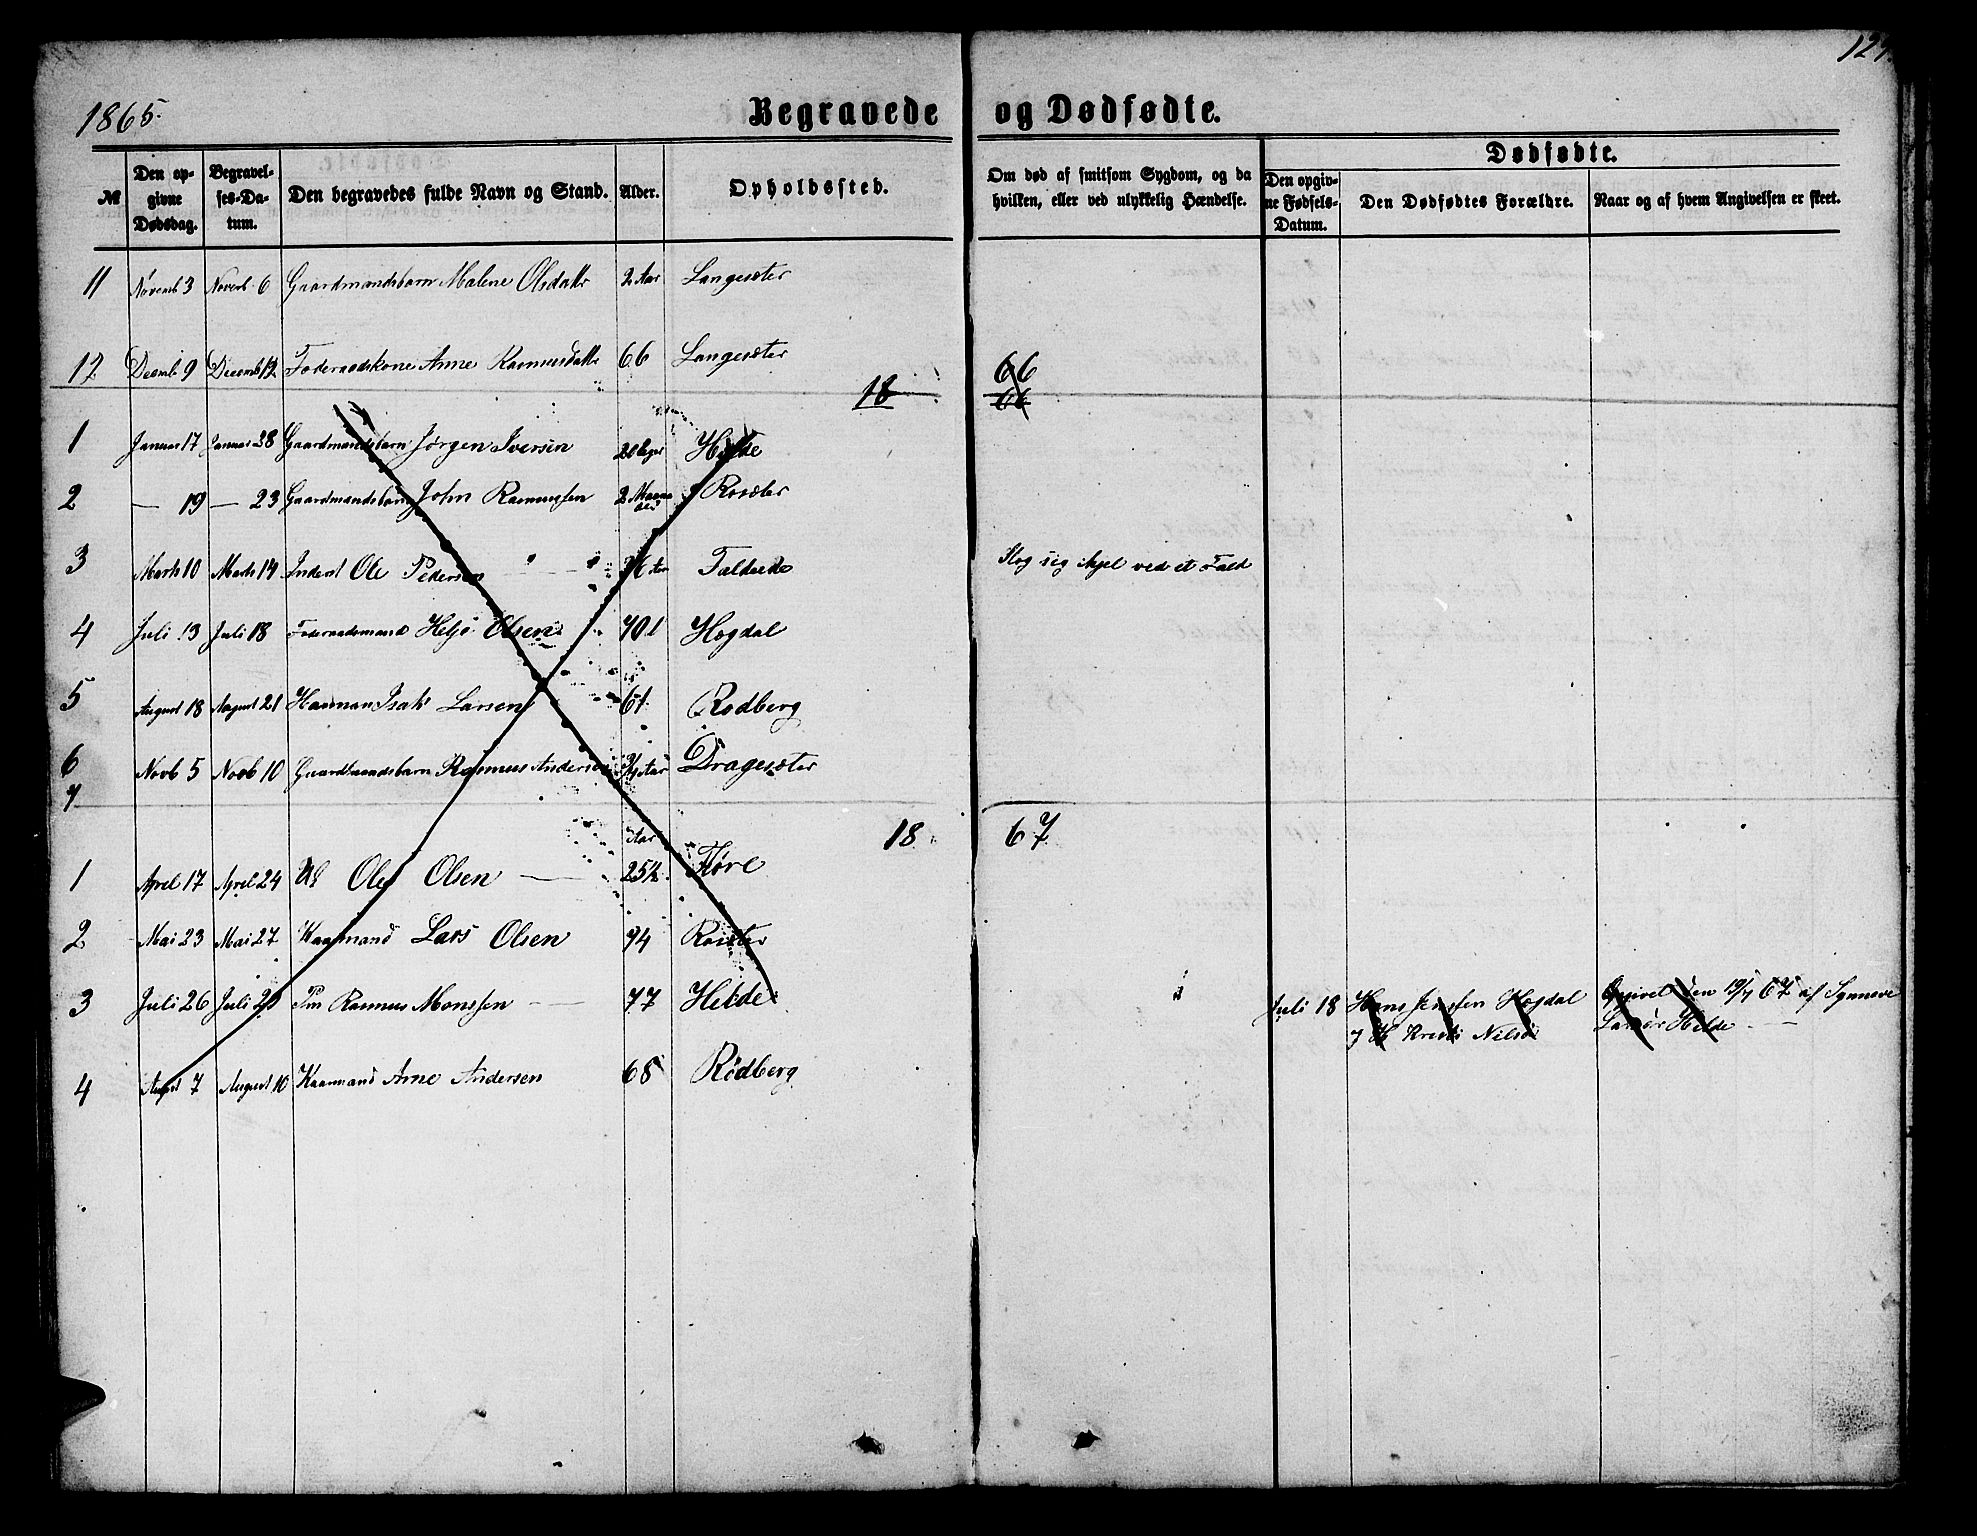 127.
1865.
Begravede og Dødfødte.
№
Den opgivne Dødsdag.
Begravelses-Datum.
Den begravedes fulde Navn og Stand.
Alder.
Opholdssted.
Om død af smitsom Sygdom, og da hvilken, eller ved ulykkelig Hændelse.
Dødfødte.
Den opgivne Fødsels-Datum.
Den Dødfødtes Forældre.
Naar og af hvem Angivelsen er skeet.
11 Novemb 3 Novemb 6 Gaardmandsbarn Malene Olsdattr 2 Aar Langesæter
12 Decemb 9 Decemb 12 Føderaadskone Anne Rasmusdattr 66 Langesæter
18 66
66
1 Januar 17 Januar 28 Gaardmandsbarn Jørgen Iversen Helde
2 — 19 — 23 Gaardmandsbarn John Rasmussen 2 Maaneder Rosæter
3 Marts 10 Marts 14 Inderst Ole Pedersen Slog sig ihjel ved et Fald
4 Juli 13 Juli 18 Føderaadsmand Helje Olsen Hogdal
5 August 18 August 21 Isak Larsen 61 Rødberg
6 Novb 5 Novb 10 Gaardmandsbarn Rasmus Andersen Aar Dragesæter
7
18 67
Aar
1 April 17 April 24 Ole Olsen — 25½ Føre
2 Mai 23 Mai 27 Kaarmand Lars Olsen 74 Rosæter
3 Juli 26 Juli 29 Rasmus Monssen — 77 Helde Juli 18 Hans Jenssen Hogdal Angivet den 19/7 67 af Synneve
Nilsd Helde —
4 August 7 August 10 Kaarmand Arne Andersen 68 Rødberg